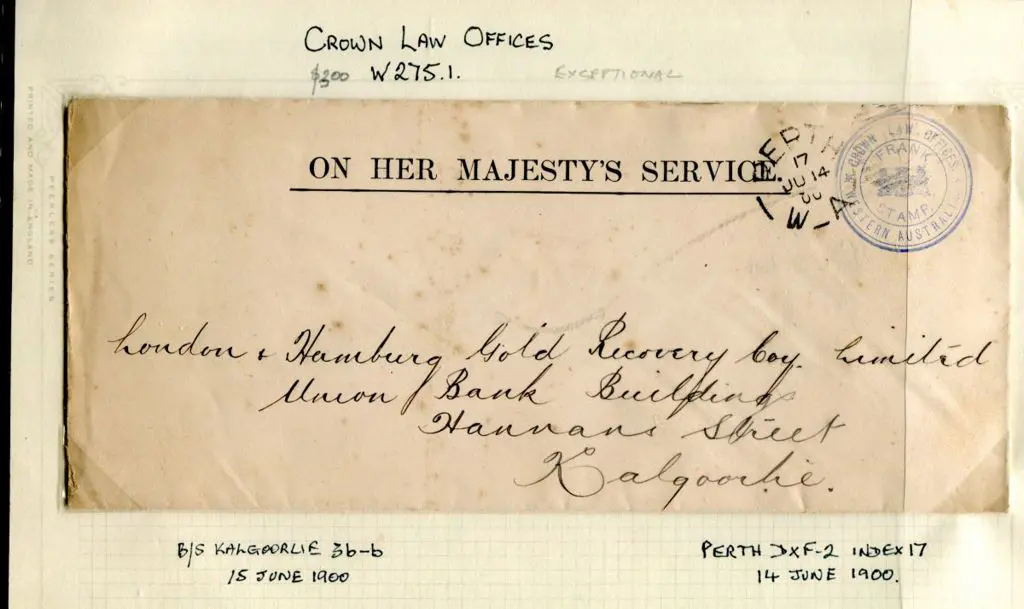 CROWN LAW OFFICES
$300 W275.1. EXCEPTIONAL
PRINTED AND MADE IN ENGLAND
PEERLESS SERIES
ON HER MAJESTY'S SERVICE.
PERTH
17
JU 14
00
W-A
CROWN LAW OFFICES
FRANK
STAMP
WESTERN AUSTRALIA
London & Hamburg Gold Recovery Coy. Limited
Union Bank Buildings
Hannans Street
Kalgoorlie.
B/S KALGOORLIE 3b-b
15 JUNE 1900
PERTH DXF-2 INDEX 17
14 JUNE 1900.